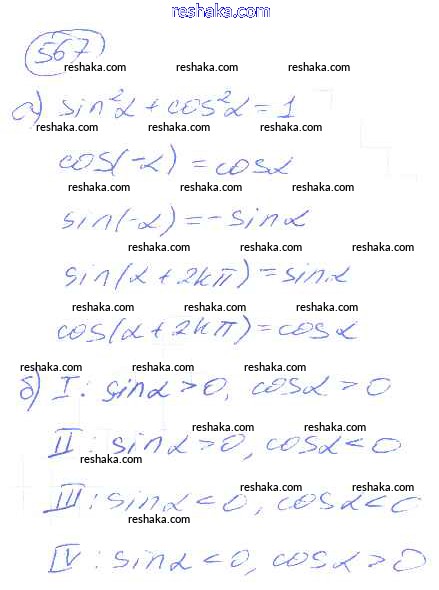 reshaka.com
567
reshaka.com reshaka.com reshaka.com
а) sin²α + cos²α = 1
reshaka.com reshaka.com reshaka.com
cos(-α) = cosα
reshaka.com reshaka.com reshaka.com
sin(-α) = -sinα
reshaka.com reshaka.com reshaka.com
sin(α + 2kπ) = sinα
reshaka.com reshaka.com reshaka.com
cos(α + 2kπ) = cosα
reshaka.com reshaka.com reshaka.com
б) I: sinα > 0, cosα > 0
reshaka.com reshaka.com
II: sinα > 0, cosα < 0
reshaka.com
reshaka.com reshaka.com
III: sinα < 0, cosα < 0
reshaka.com
reshaka.com reshaka.com
IV: sinα < 0, cosα > 0